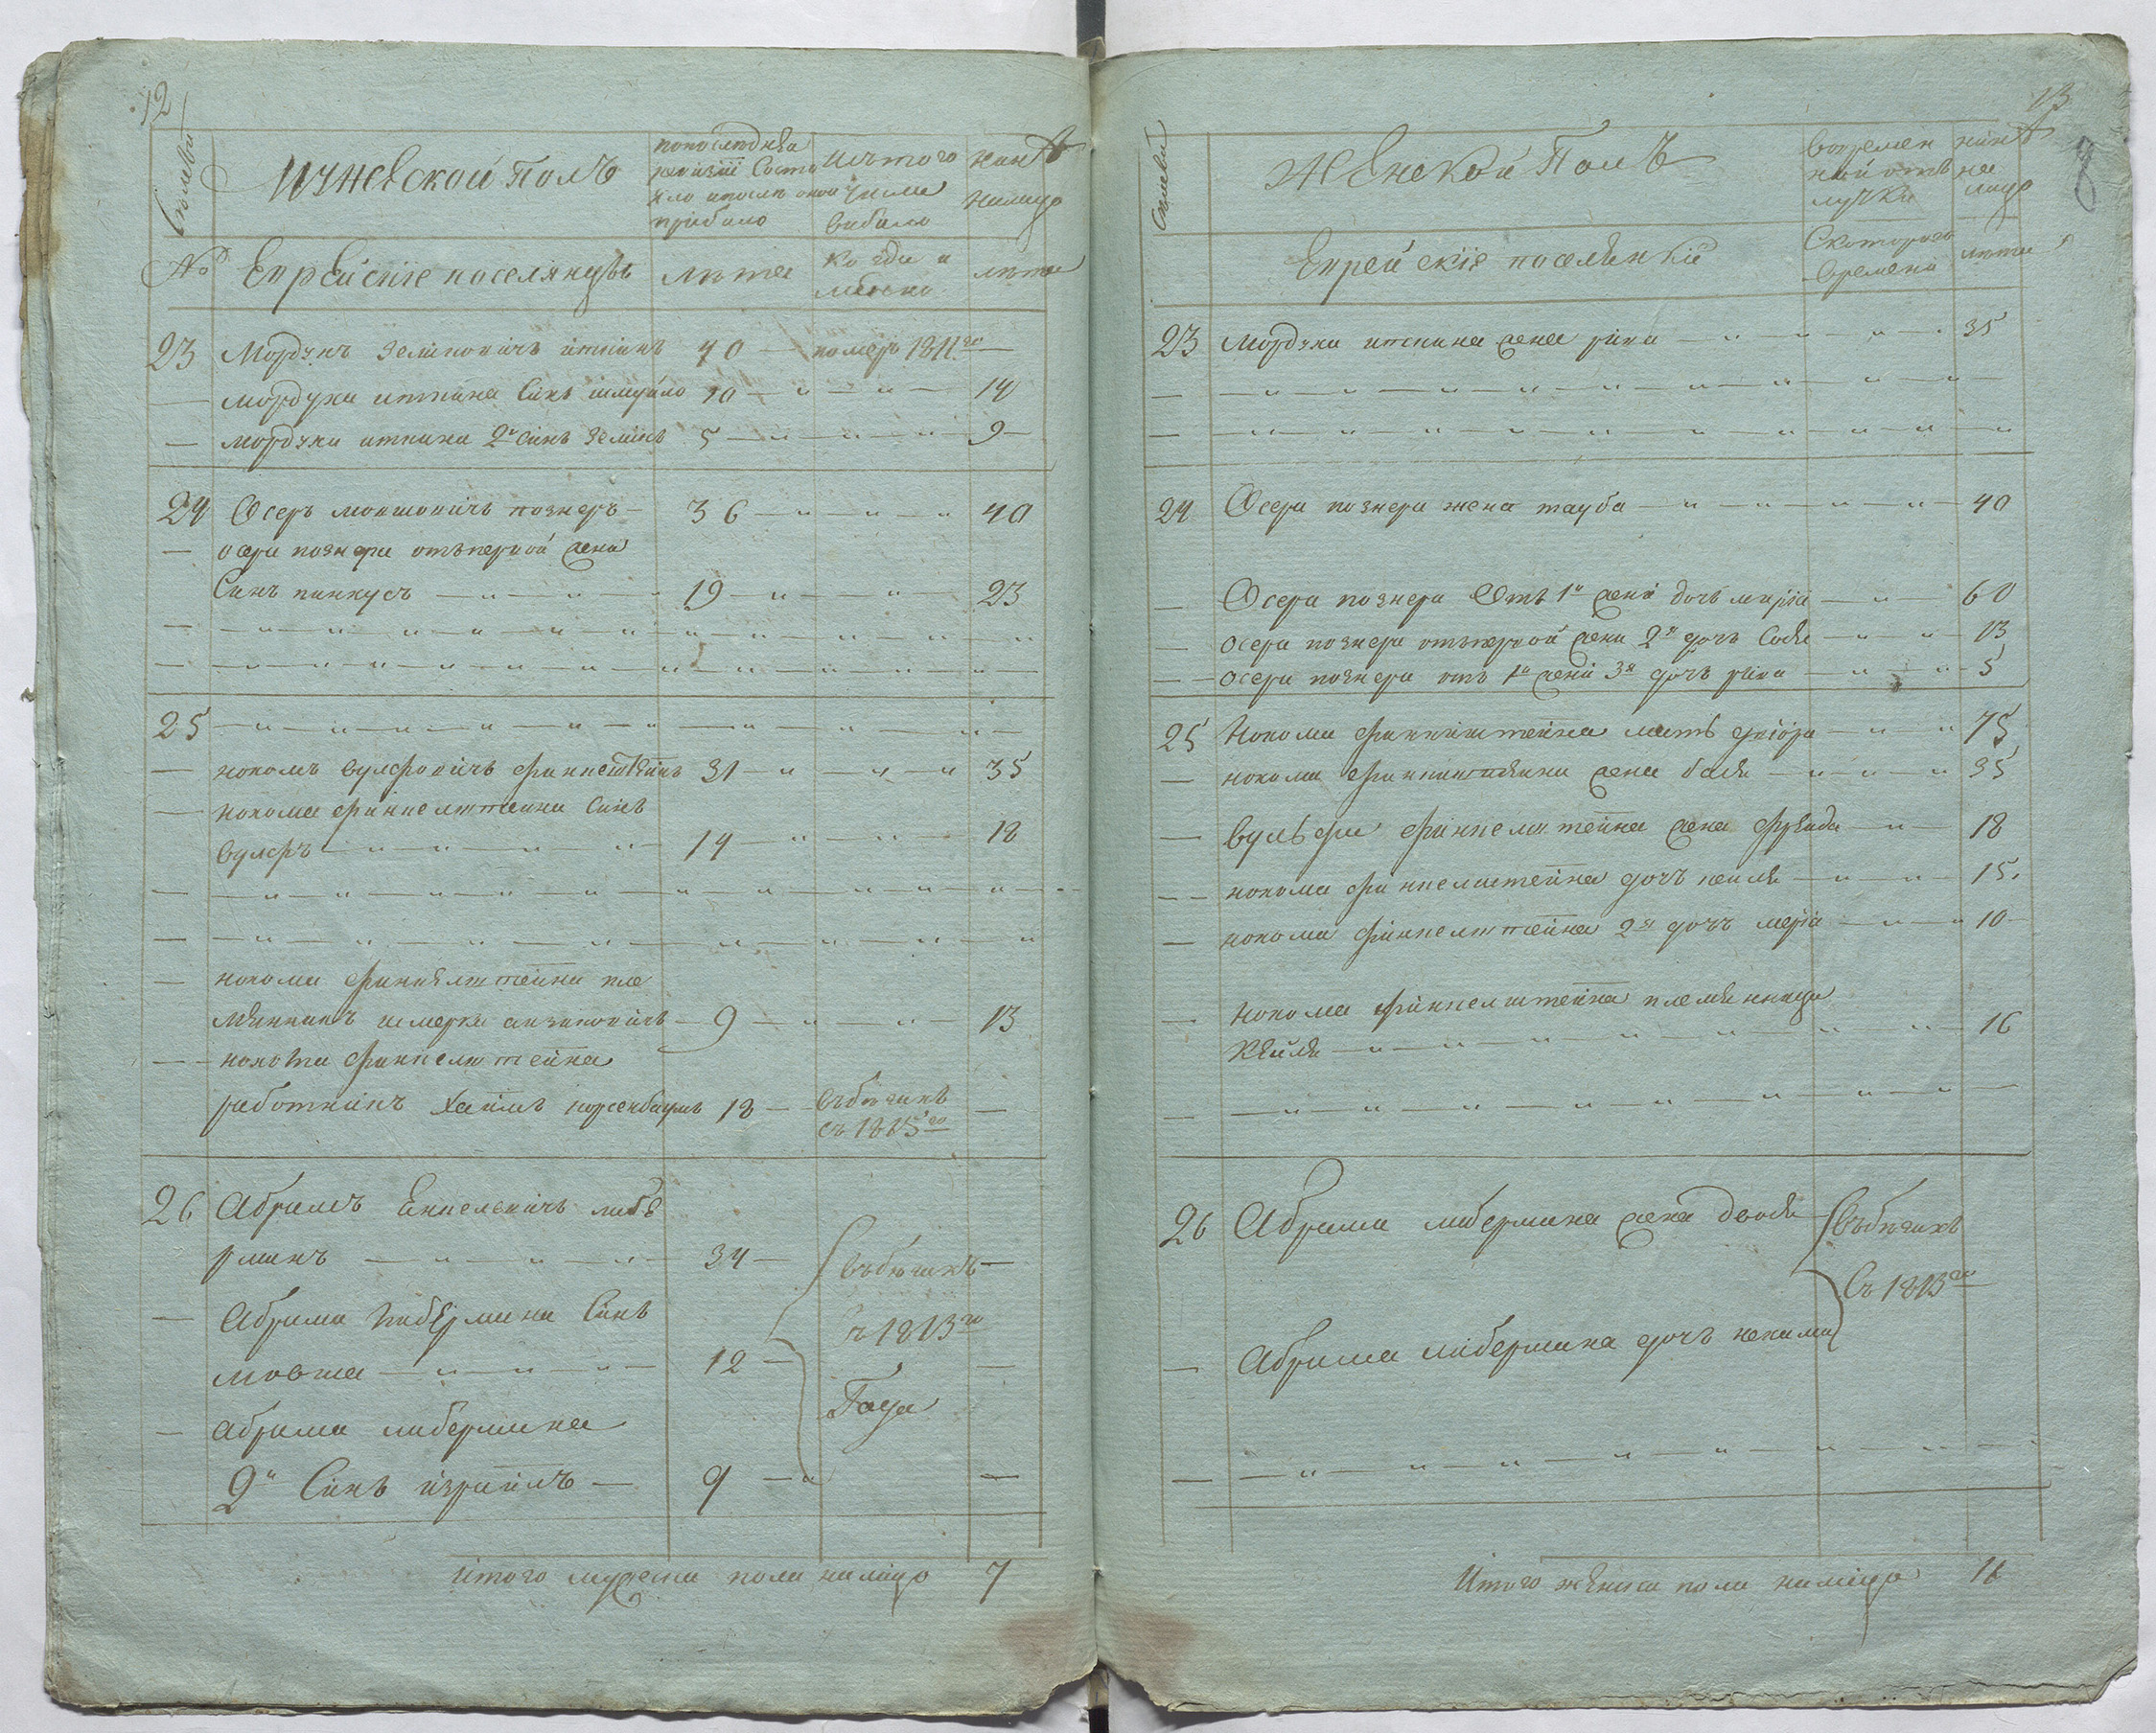 12
Семьи
Мужеской Полъ
по последней
ревизiи состо
яло и после оной
прибыло
Изъ того
числа
выбыло
Ныне
на лицо
№
Еврейскiе поселянцы
лета
когда и
лета
23 Мордухъ Зеликовичъ иткинъ 40 — померъ 1811го —
— мордуха иткина Синъ шмуйло 10 — " — " — 14
— мордуха иткина 2й синъ Зеликъ 5 — " — " — " 9 —
24 Осеръ мовшовичъ познеръ — 36 — " — " — " 40
— осера познера отъ первой жени
Синъ пинкусъ — " — " — 19 — " — " — 23
— — " — " — " — " — " — " — " — " — " — "
— — " — " — " — " — " — " — " — " — " —
25 — " — " — " — " — " — " — " — " —
— нохомъ вулфовичъ финкелштейнъ 31 — " — " — " 35
— нохома финкелштейна Синъ
вулфъ — " — " — " — " — 14 — " — " — 18
— — " — " — " — " — " — " — " — " — " — " —
— — " — " — " — " — " — " — " — " — "
— нохома финкелштейна пле
мянникъ шмерка — 9 — " — " — 13
— нохома финкелштейна
работникъ Хаимъ 18 — въ бегахъ —
съ 1815го
26 Абрамъ либе
рманъ — " — " — " — " — 34 — въ бегахъ —
— Абрама либермана Синъ
съ 1813го
мовша — " — " — " — 12 — —
Года
— абрама либермана
2й Синъ израилъ — 9 — " —
Итого мужеска пола на лицо 7
13
Семьи
Женской Полъ
во времен
ной отъ
лучке
ныне
на
лицо
Еврейскiя поселянки
Скотораго
времени
лета
23 Мордуха иткина жена рива — " — " — " — 35
— — " — " — " — " — " — " — " — " — " — " —
— — " — " — " — " — " — " — " — " — " — "
24 Осера познера жена тауба — " — " — " — " — 40
— Осера познера Отъ 1й жени дочъ марiя — " — 60
— осера познера отъ первой жени 2я дочъ Собя — " — " — 13
— — осера познера отъ 1й жени 3я дочъ рива — " — " — 5
25 Нохома финкиштейна мать — " — " 75
— нохома финкиштейна жена бася — " — " — " 35
— вульфа финкелштейна жена фрейда — " — 18
— — нохома финкелштейна дочъ — " — " — 15.
— нохома финкелштейна 2я дочъ мерiя — " — " 10
— нохома финкелштейна племянница
Кейля — " — " — " — " — " — " — " — 16
— — " — " — " — " — " — " — " — " — " —
26 Абрама либермана жена двося въ бегахъ
съ 1813го
— Абрама либермана дочъ нехама
— — " — " — " — " — " — " — " —
Итого женска пола на лицо 11